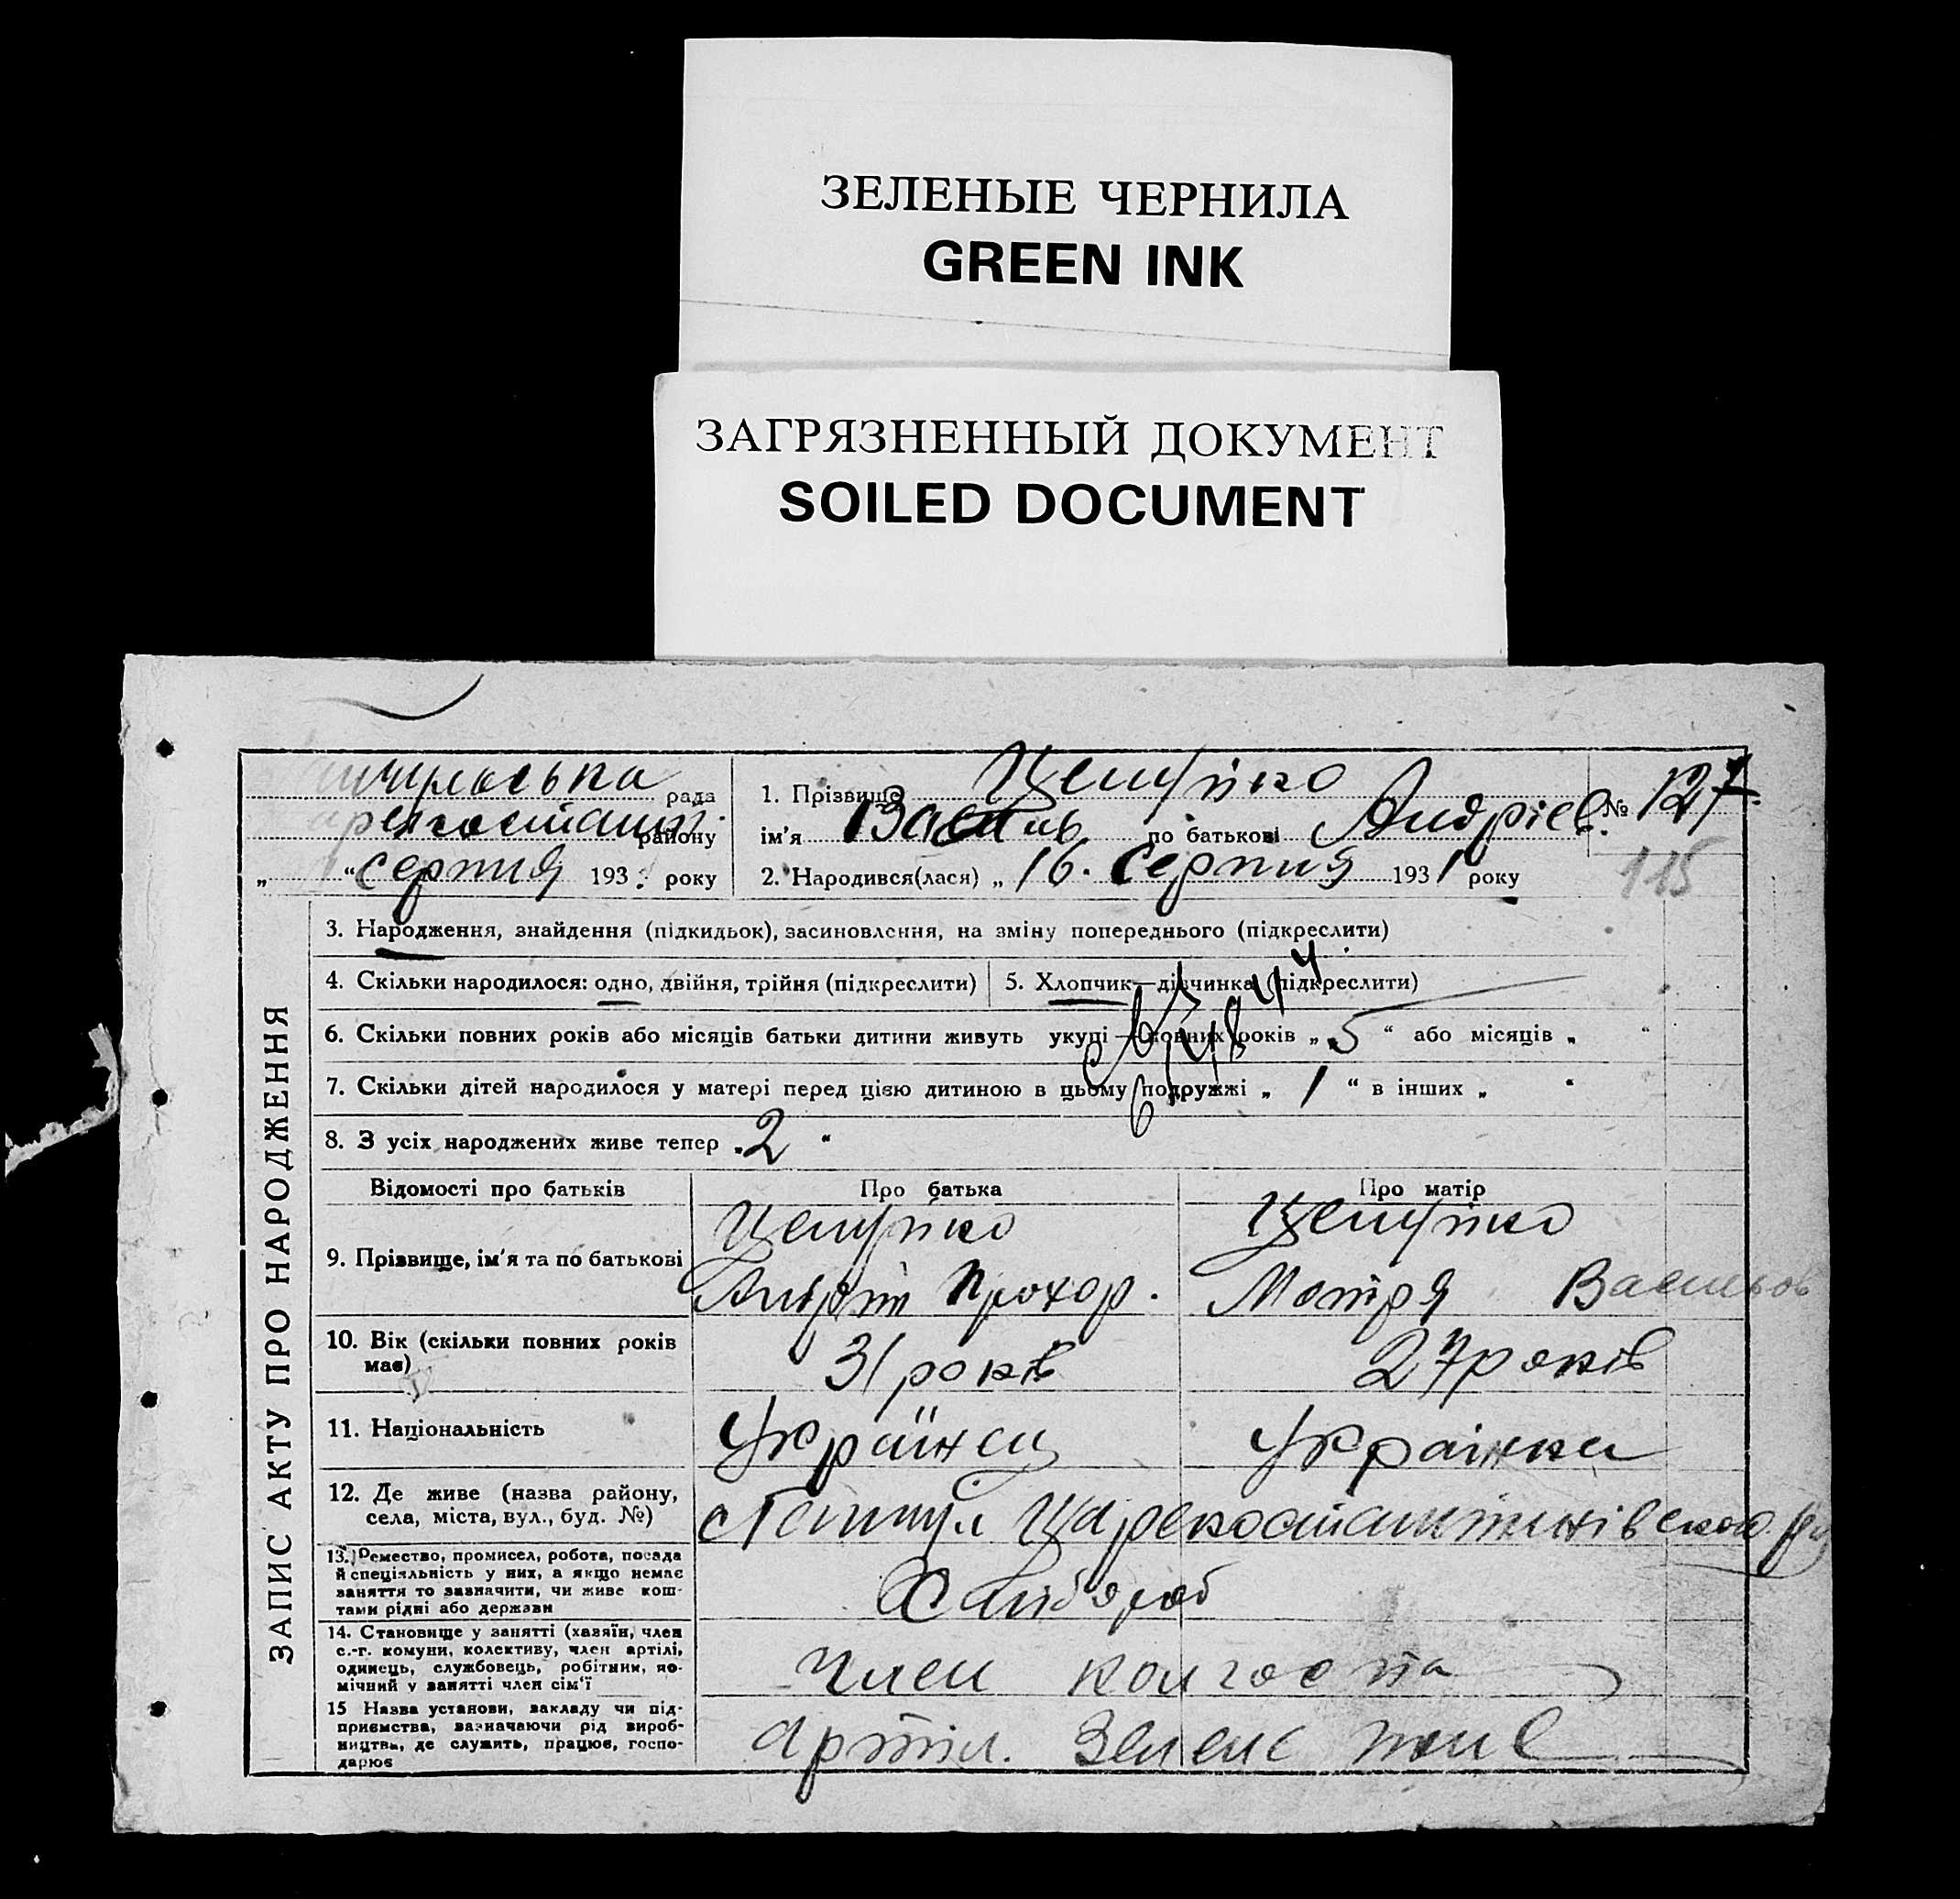 ЗЕЛЕНЫЕ ЧЕРНИЛА
GREEN INK
ЗАГРЯЗНЕННЫЙ ДОКУМЕНТ
SOILED DOCUMENT
рада
району
„ “ серпня 193 року
1. Прізвище
ім'я Василь по батькові Андрієв. № 127
2. Народився(лася) „ 16. серпня 1931 року
115
ЗАПИС АКТУ ПРО НАРОДЖЕННЯ
3. Народження, знайдення (підкидьок), засиновлення, на зміну попереднього (підкреслити)
4. Скільки народилося: одно, двійня, трійня (підкреслити) 5. Хлопчик—дівчинка (підкреслити)
6. Скільки повних років або місяців батьки дитини живуть укупі — повних років „ 5 “ або місяців „ “
7. Скільки дітей народилося у матері перед цією дитиною в цьому подружжі „ 1 “ в інших „ “
8. З усіх народжених живе тепер „ 2 “
Відомості про батьків Про батька Про матір
9. Прізвище, ім'я та по батькові
Андрій Прохор. Мотря Васильов
10. Вік (скільки повних років має) 31 років 27 років
11. Національність Українец Українка
12. Де живе (назва району, села, міста, вул., буд. №)
13. Ремество, промисел, робота, посада й спеціяльність у них, а якщо немає заняття то зазначити, чи живе коштами рідні або держави Хлібороб
14. Становище у занятті (хазяїн, член с.-г. комуни, колективу, член артілі, одинець, службовець, робітник, помічний у занятті член сім'ї член колгоспа
15 Назва установи, закладу чи підприємства, вазначаючи рід виробництва, де служить, працює, господарює артіл.